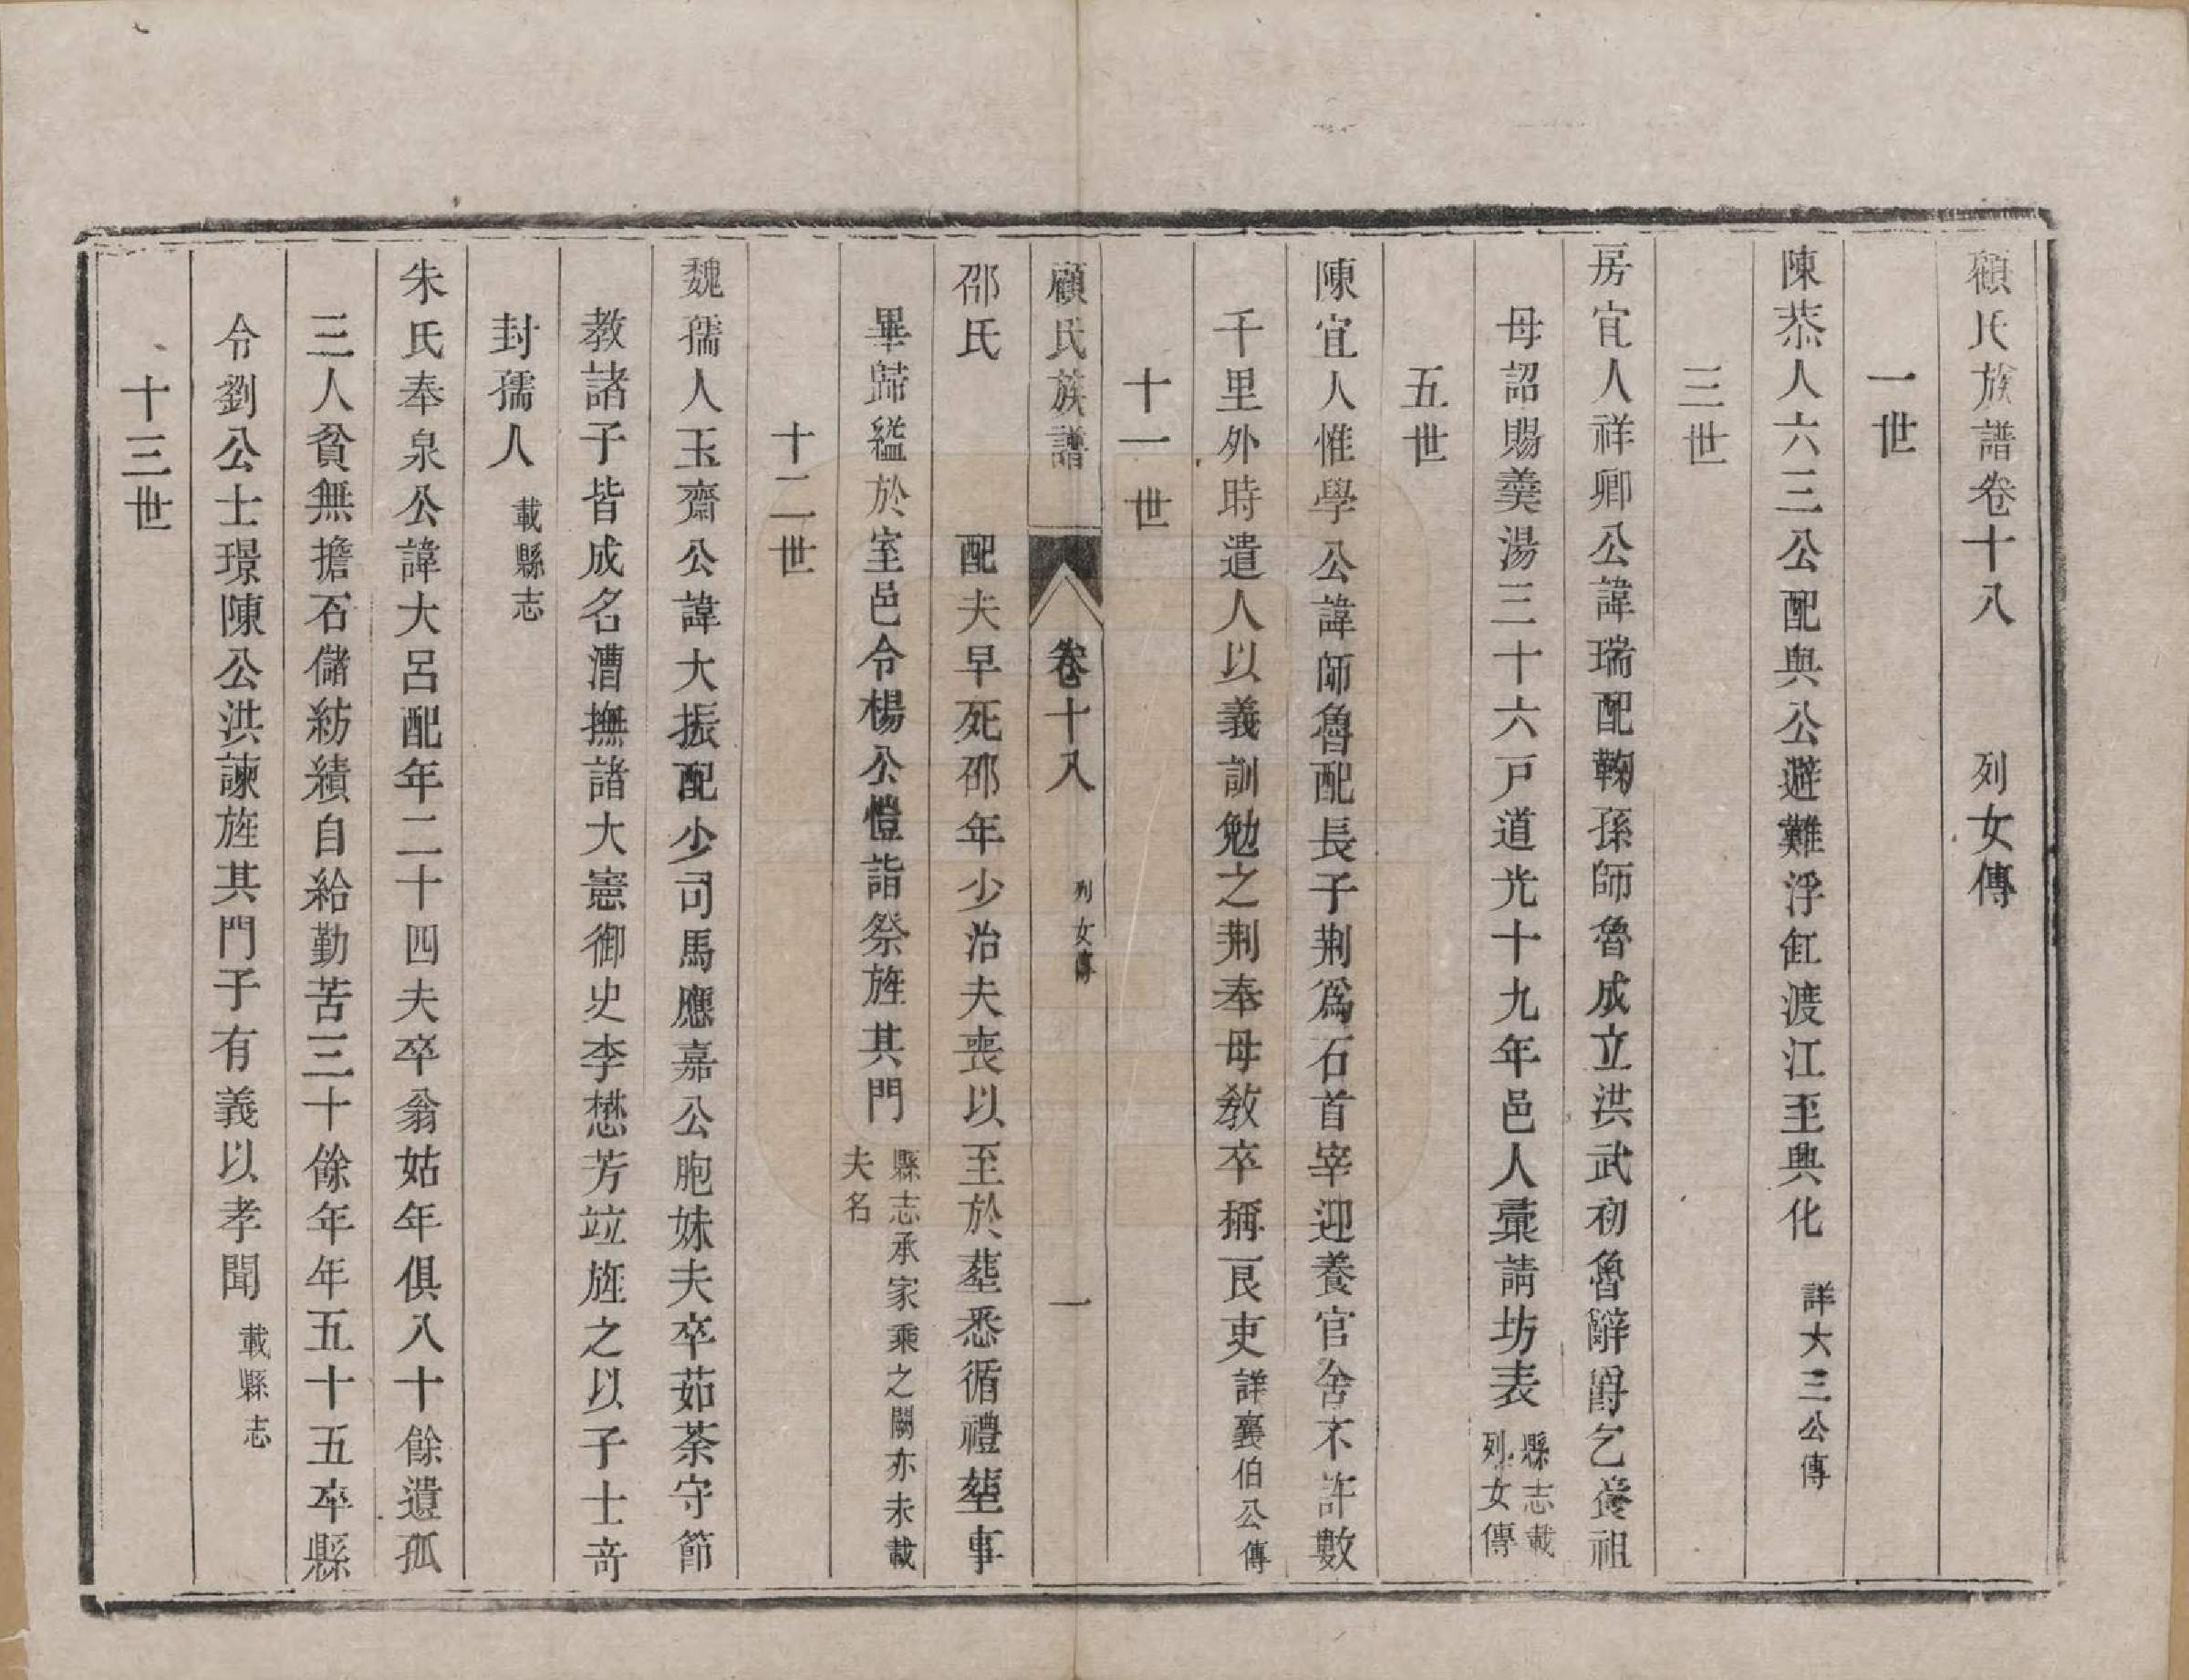 顧氏族譜卷十八　列女傳
一世
陳恭人六三公配與公避難浮缸渡江至興化 詳六三公傳
三世
房宜人祥卿公諱瑞配鞠孫師魯成立洪武初魯辭爵乞養祖
母詔賜羮湯三十六戸道光十九年邑人稟請坊表 縣志載列女傳
五世
陳宜人惟學公諱師魯配長子荆爲石首宰迎養官舍不許數
千里外時遣人以義訓勉之荆奉母教卒稱良吏 詳襄伯公傳
十一世
顧氏族譜　卷十八　列女傳　一
邵氏　配夫早死邵年少治夫喪以至於塟悉循禮塟事
畢歸縊於室邑令楊公愷詣祭旌其門 縣志承家乘之闕亦未載夫名
十二世
魏孺人玉齋公諱大振配少司馬應嘉公胞妹夫卒茹荼守節
教諸子皆成名漕撫諸大憲御史李懋芳竝旌之以子士竒
封孺人 載縣志
朱氏奉泉公諱大呂配年二十四夫卒翁姑年俱八十餘遺孤
三人貧無擔石儲紡績自給勤苦三十餘年年五十五卒縣
令劉公士璟陳公洪諫旌其門子有義以孝聞 載縣志
十三世